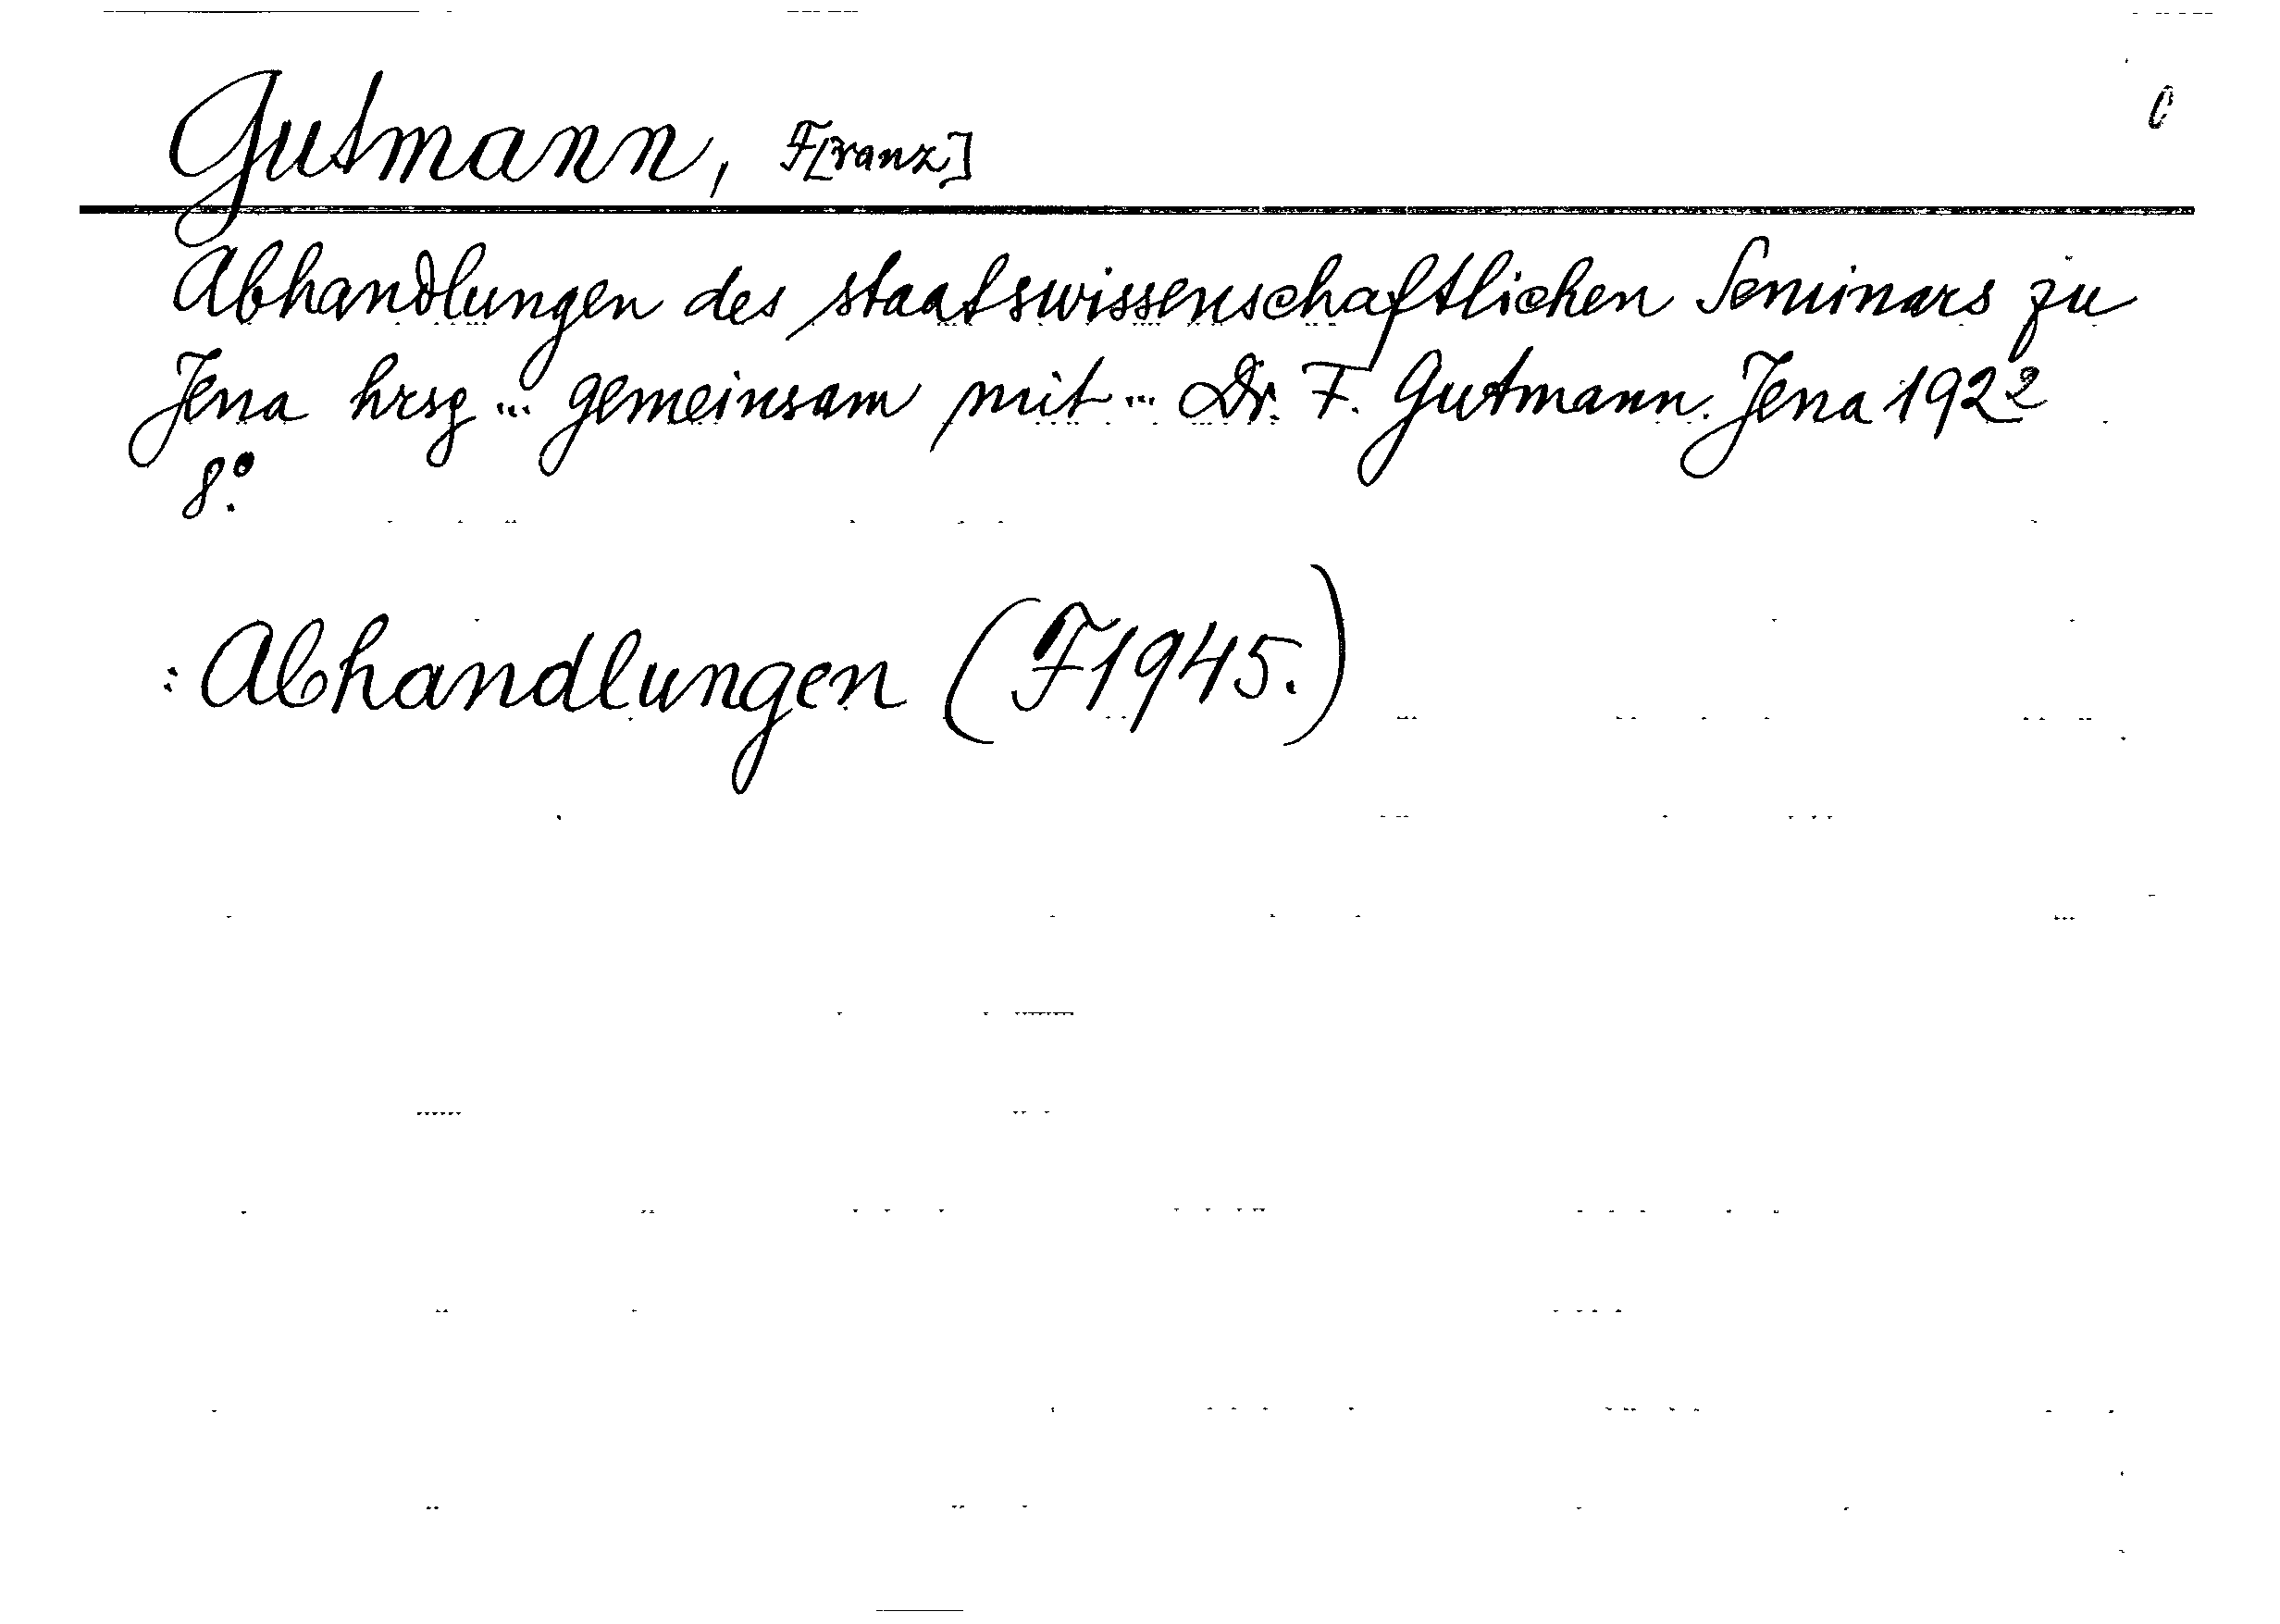 Gutmann, F[ranz]
Abhandlungen des staatswissenschaftlichen Seminars zu
Jena hrsg ... gemeinsam mit ... Dr. F. Gutmann. Jena 1922
8°.
: Abhandlungen (F1945.)